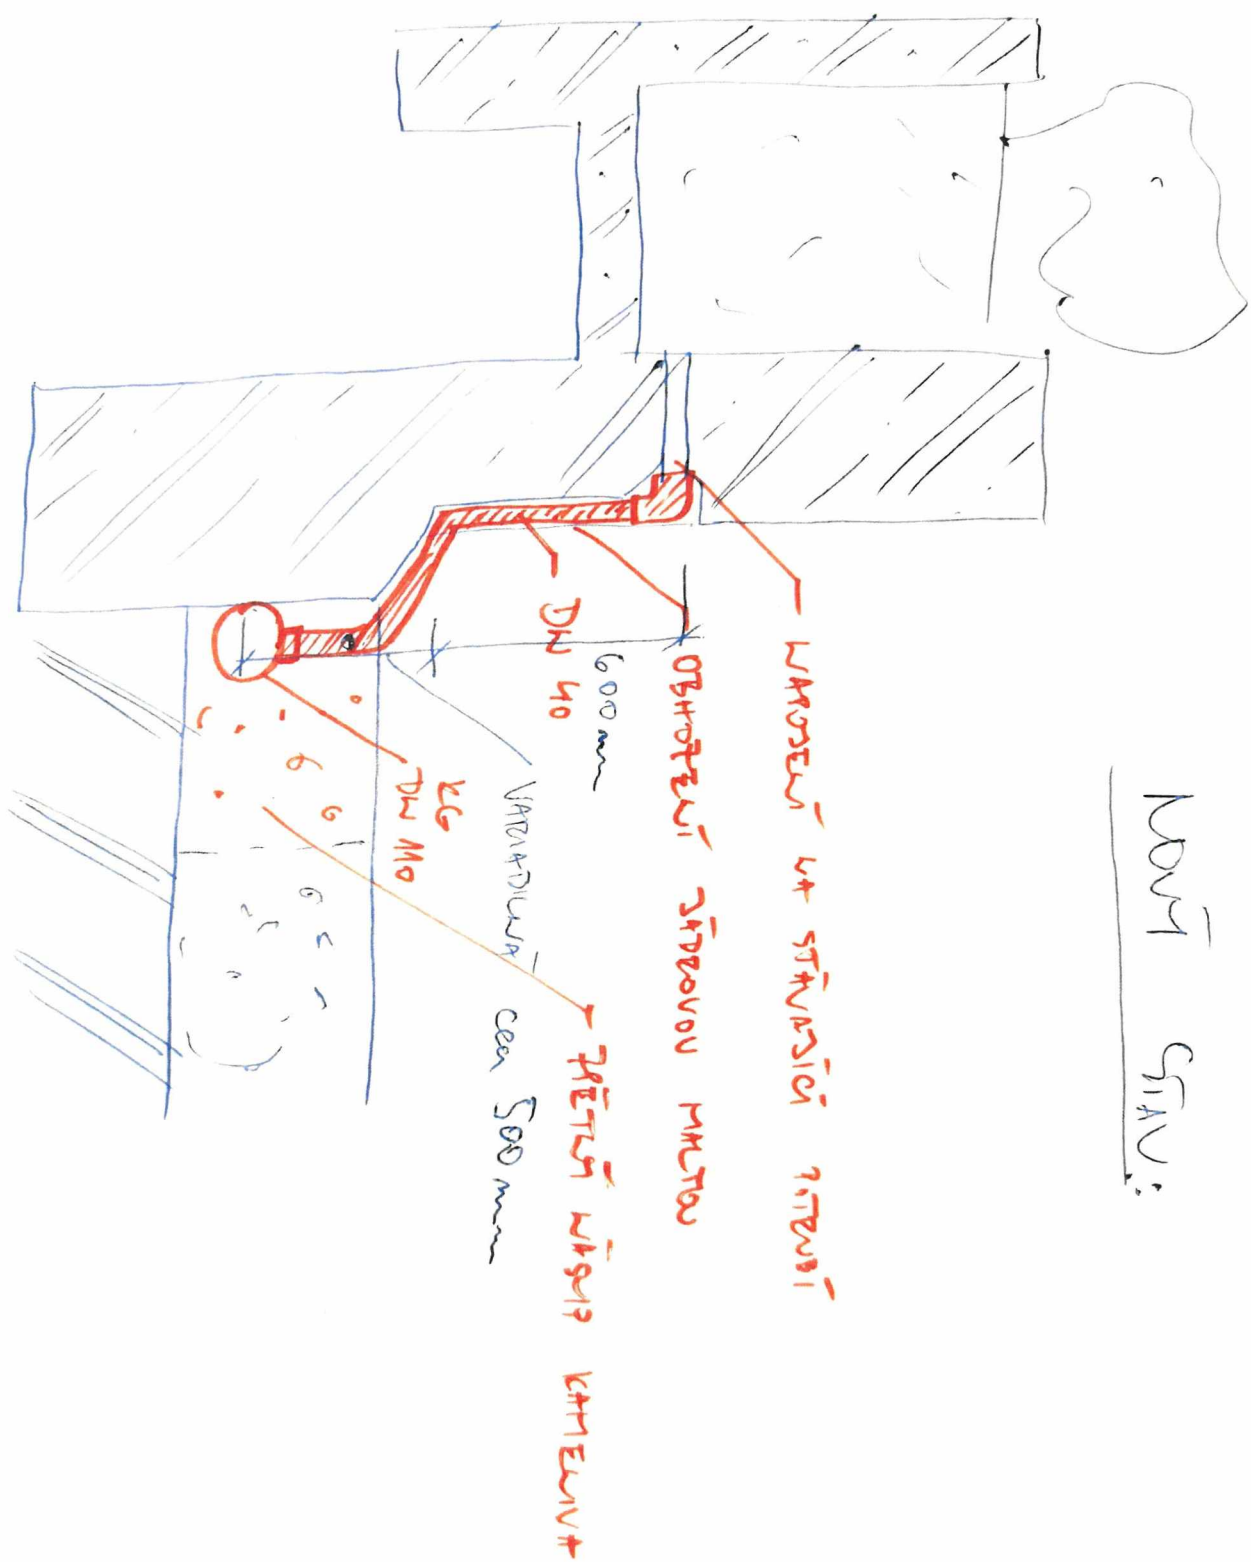 NOVÝ STAV:
NAPOJENÍ NA STÁVAJÍCÍ POTRUBÍ
OBHOŘENÍ JÁDROVOU MALTOU
600 mm
DN 40
VARIABILNÁ cca 500 mm
KG
DN 110
ZPĚTNÝ NÁSYP KAMENIVA